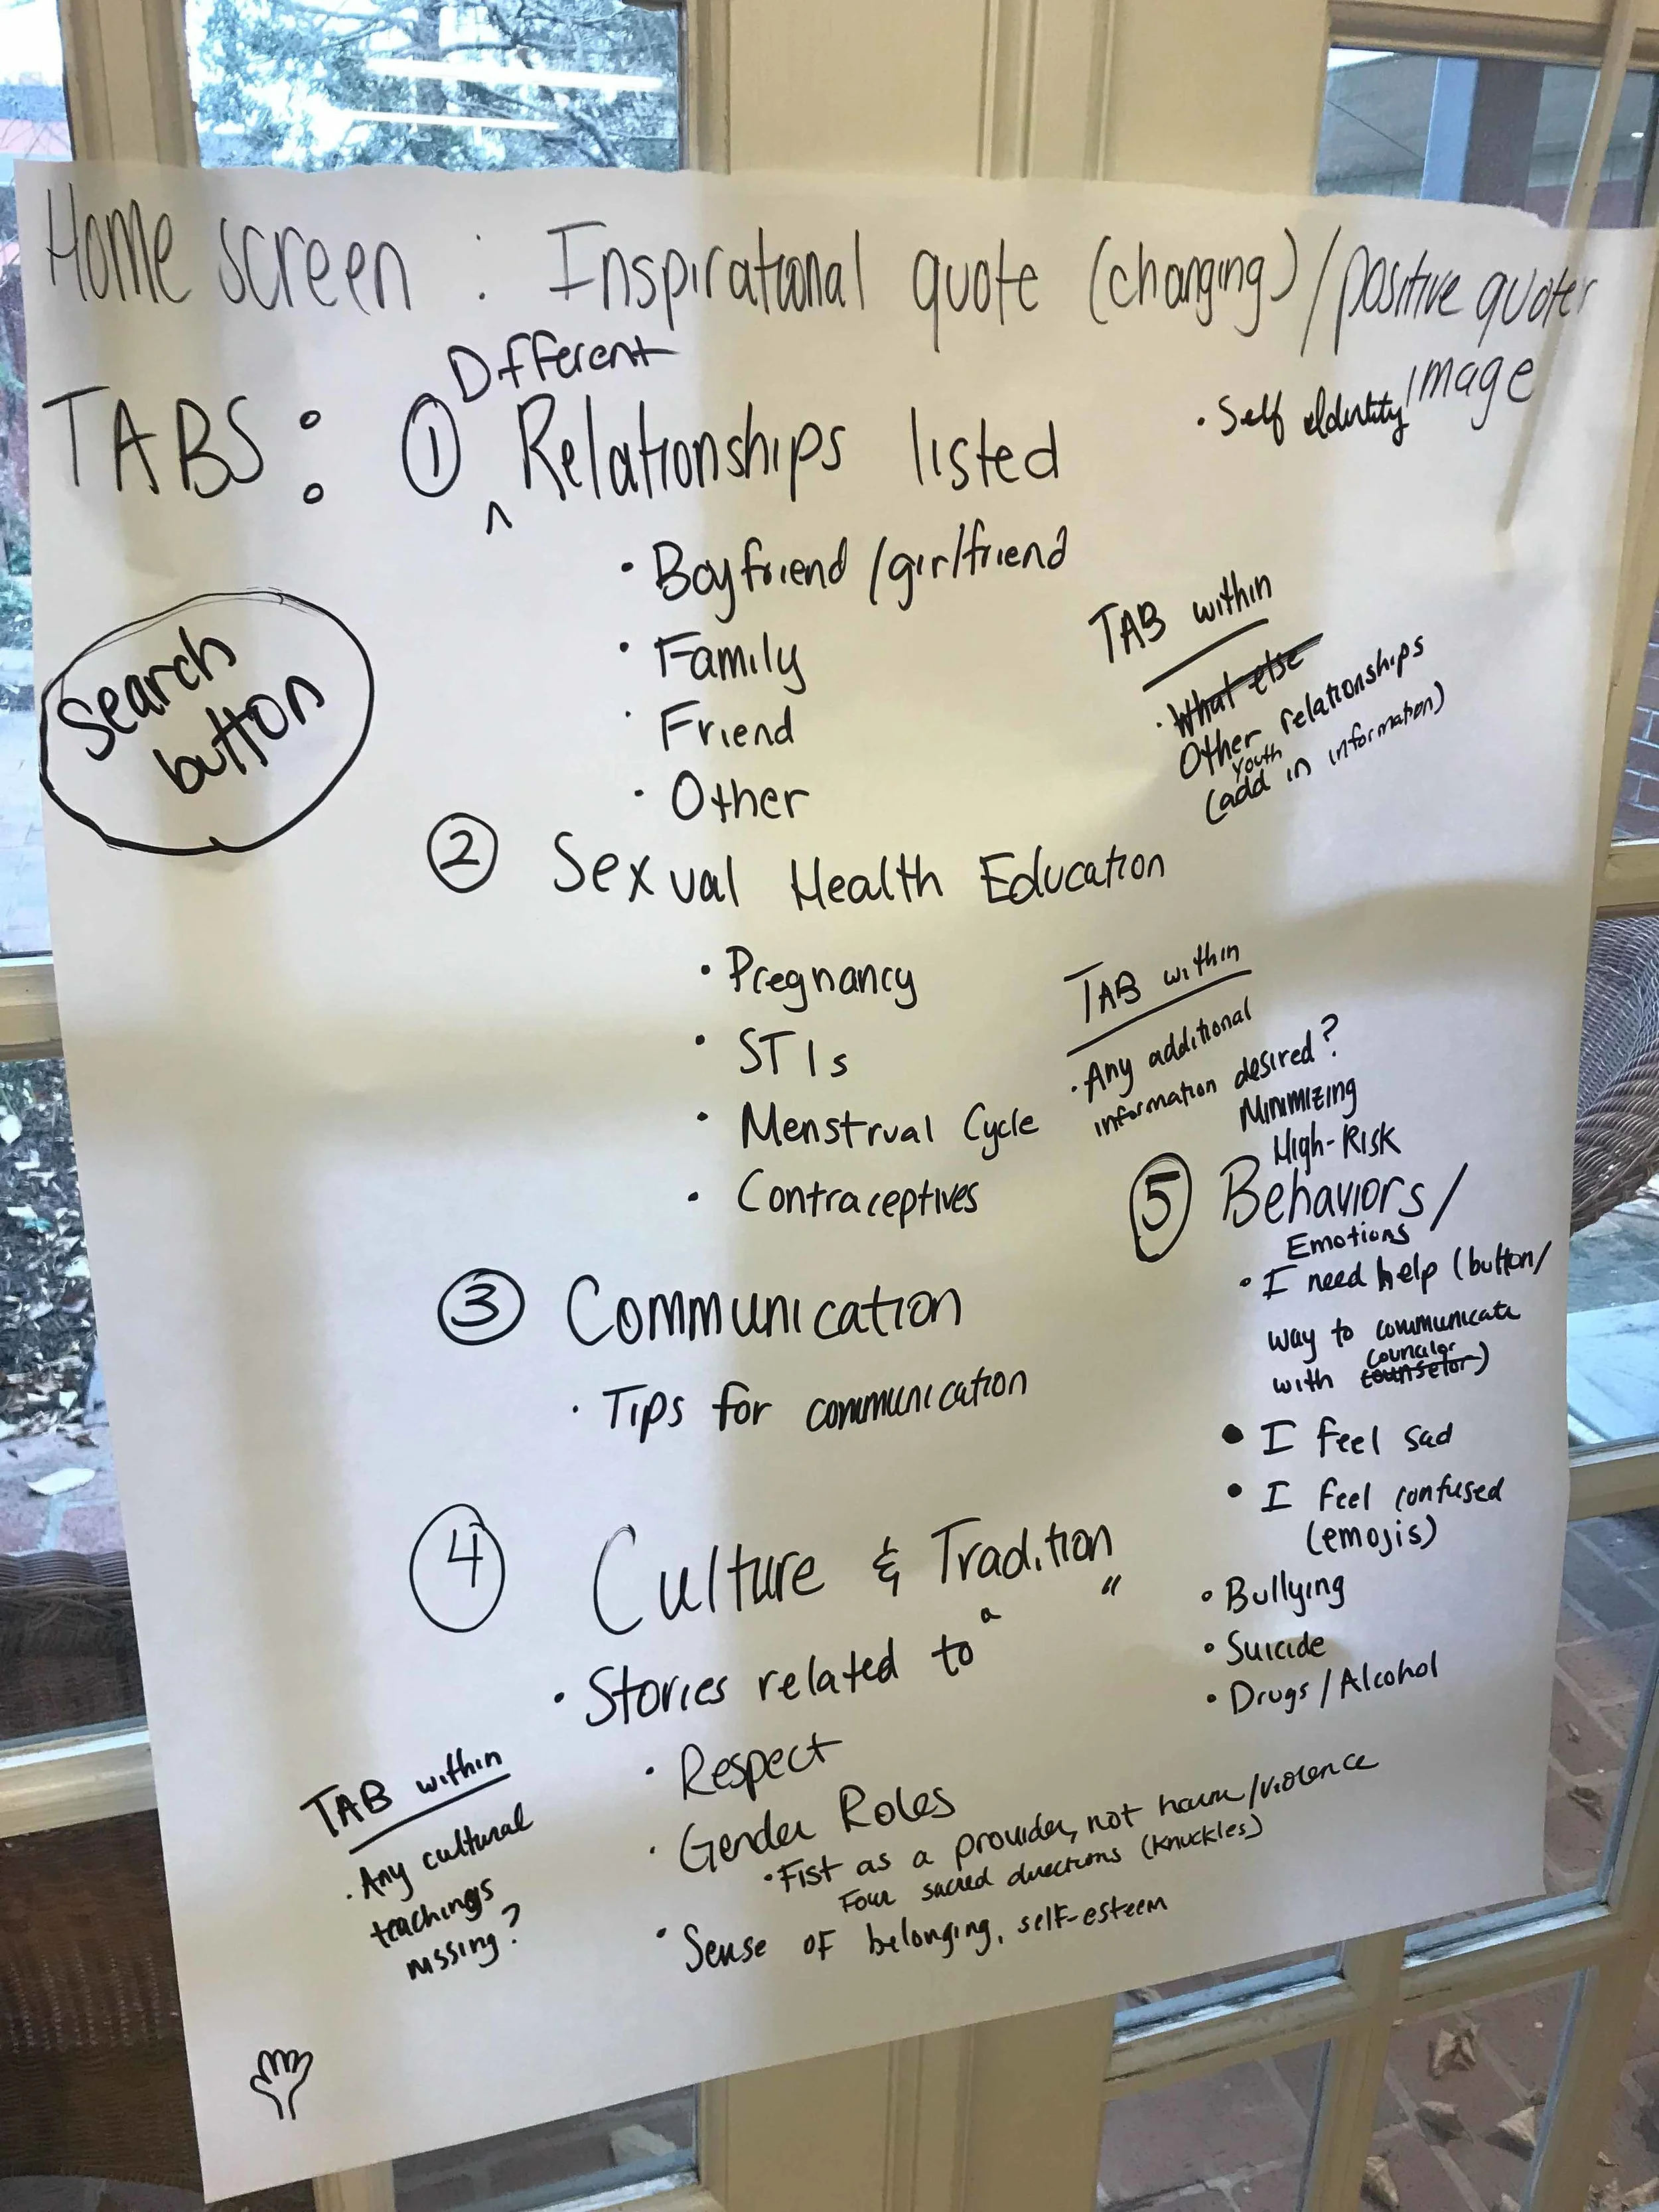 Home screen : Inspirational quote (changing) / positive quotes
image
TABS: ① Different Relationships listed
• Self Identity
• Boyfriend / girlfriend
• Family
• Friend
• Other
TAB within
• What else
Other relationships
youth
(add in information)
Search
button
② Sexual Health Education
• Pregnancy
• STIs
• Menstrual Cycle
• Contraceptives
TAB within
• Any additional
information desired?
③ Communication
• Tips for communication
④ Culture & Tradition
• Stories related to " "
• Respect
• Gender Roles
• Fist as a provider, not harm/violence
Four sacred directions (knuckles)
• Sense of belonging, self-esteem
TAB within
• Any cultural
teachings
missing?
Minimizing
High-Risk
⑤ Behaviors /
Emotions
• I need help (button/
way to communicate
councilor
with counselor)
• I feel sad
• I feel confused
(emojis)
• Bullying
• Suicide
• Drugs / Alcohol